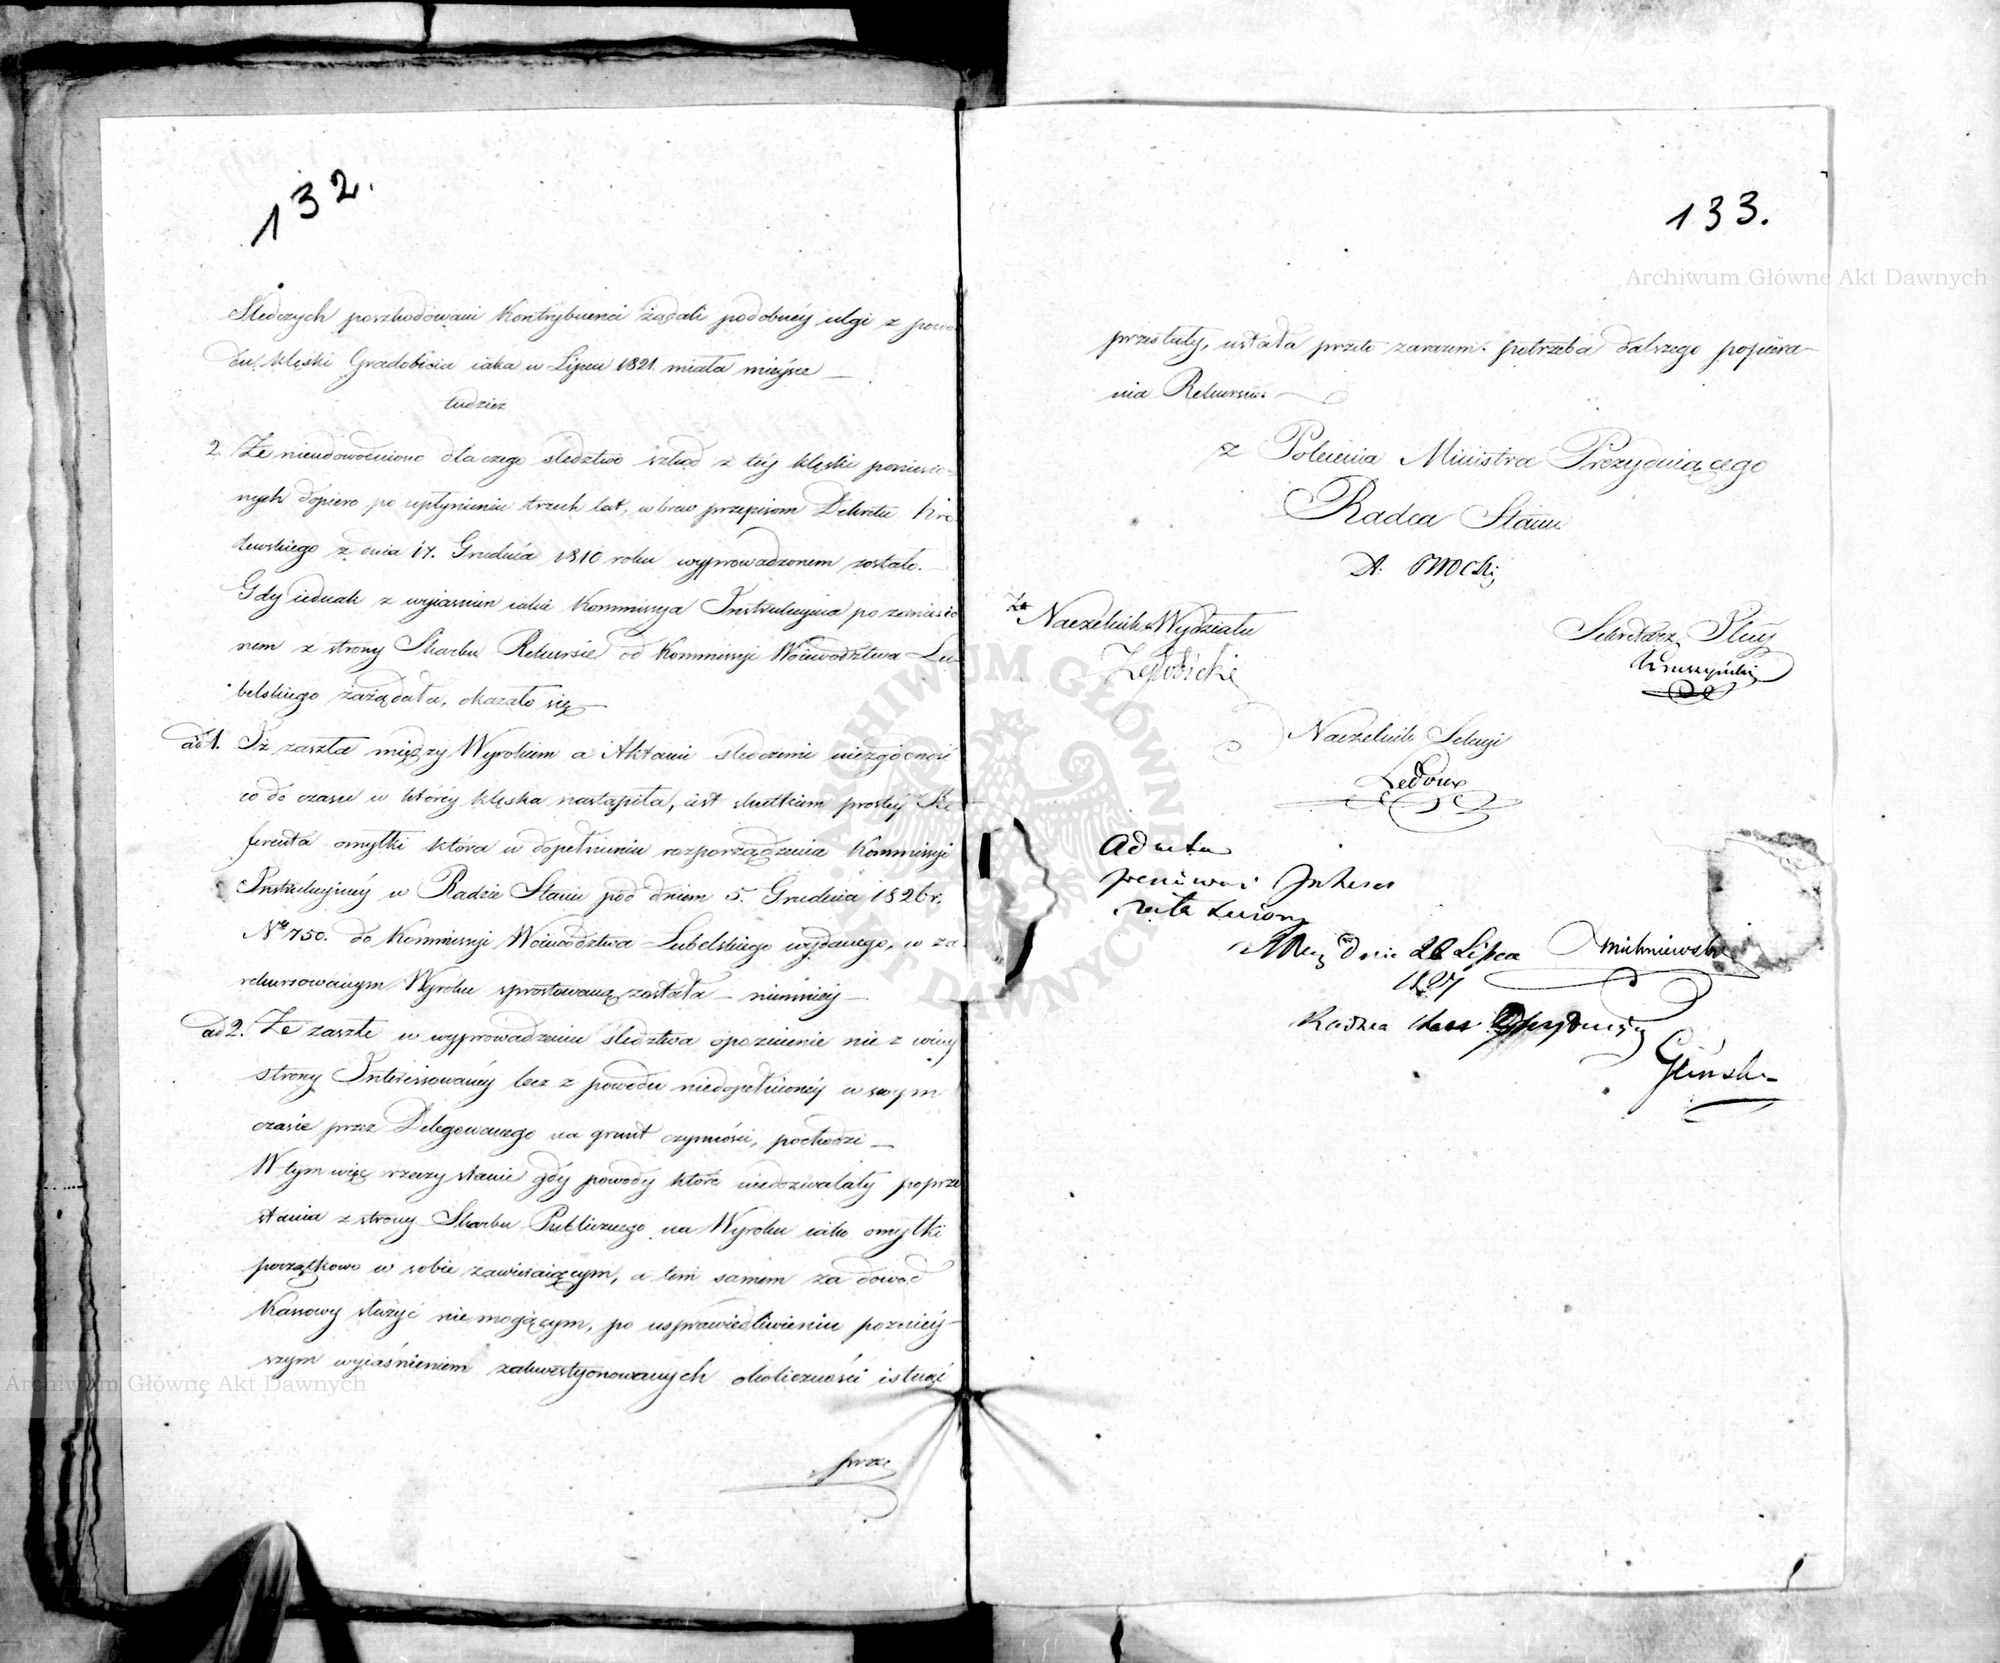 132.
Sledczych poszkodowani Kontrybuenci żądali podobnéy ulgi z powo-
du klęski Gradobicia iaka w Lipcu 1821. miała mieysce —
tudzież
2. Że nieudowodniono dla czego sledztwo szkód z téy klęski poniesio-
nych dopiero po upłynieniu trzech lat, wbrew przepisom Dekretu Kró-
lewskiego z dnia 17. Grudnia 1810 roku wyprowadzonem zostało. —
Gdy iednak z wyiasnien iakie Kommissya Instrukcyina po zaniesio-
nem z strony Skarbu Rekursie od Kommissyi Woiewodztwa Lu-
belskiego zażądała, okazało się —
ad 1. Iż zaszła między Wyrokiem a Aktami sledczemi niezgodność
co do czasu w którey klęska nastąpiła, iest skutkiem prostéy Re-
ferenta omyłki która w dopełnieniu rozporządzenia Kommissyi
Instrukcyinéy w Radzie Stanu pod dniem 5. Grudnia 1826 r.
Nro 750. do Kommissyi Woiewodztwa Lubelskiego wydanego, w za-
rekursowanym Wyroku sprostowaną została — niemniéy —
ad 2. Że zaszłe w wyprowadzeniu sledztwa opoznienie nie z winy
strony Interessowanéy lecz z powodu niedopełnionéy w swym
czasie przez Delegowanego na grunt czynności, pochodzi —
W tym więc rzeczy stanie gdy powody które niedozwalały poprze-
stania z strony Skarbu Publicznego na Wyroku iako omyłki
początkowo w sobie zawieraiącym, a tem samem za dowód
Kassowy służyć nie mogącym, po usprawiedliwieniu poznieỳ-
szym wyiaśnieniem zakwestyonowanych okoliczności istnąć
prze
133.
przestały, ustała przeto zarazem potrzeba dalszego popiera-
nia Rekursu.
z Polecenia Ministra Prezyduiącego
Radca Stanu
Za Naczelnik Wydziału
Sekretarz
Naczelnik Sekcyi
Ledoux
Ad acta
ponieważ
dnia 28 Lipca
1827
Radzca
Gliński
Archiwum Główne Akt Dawnych
Archiwum Główne Akt Dawnych
ARCHIWUM GŁÓWNE AKT DAWNYCH